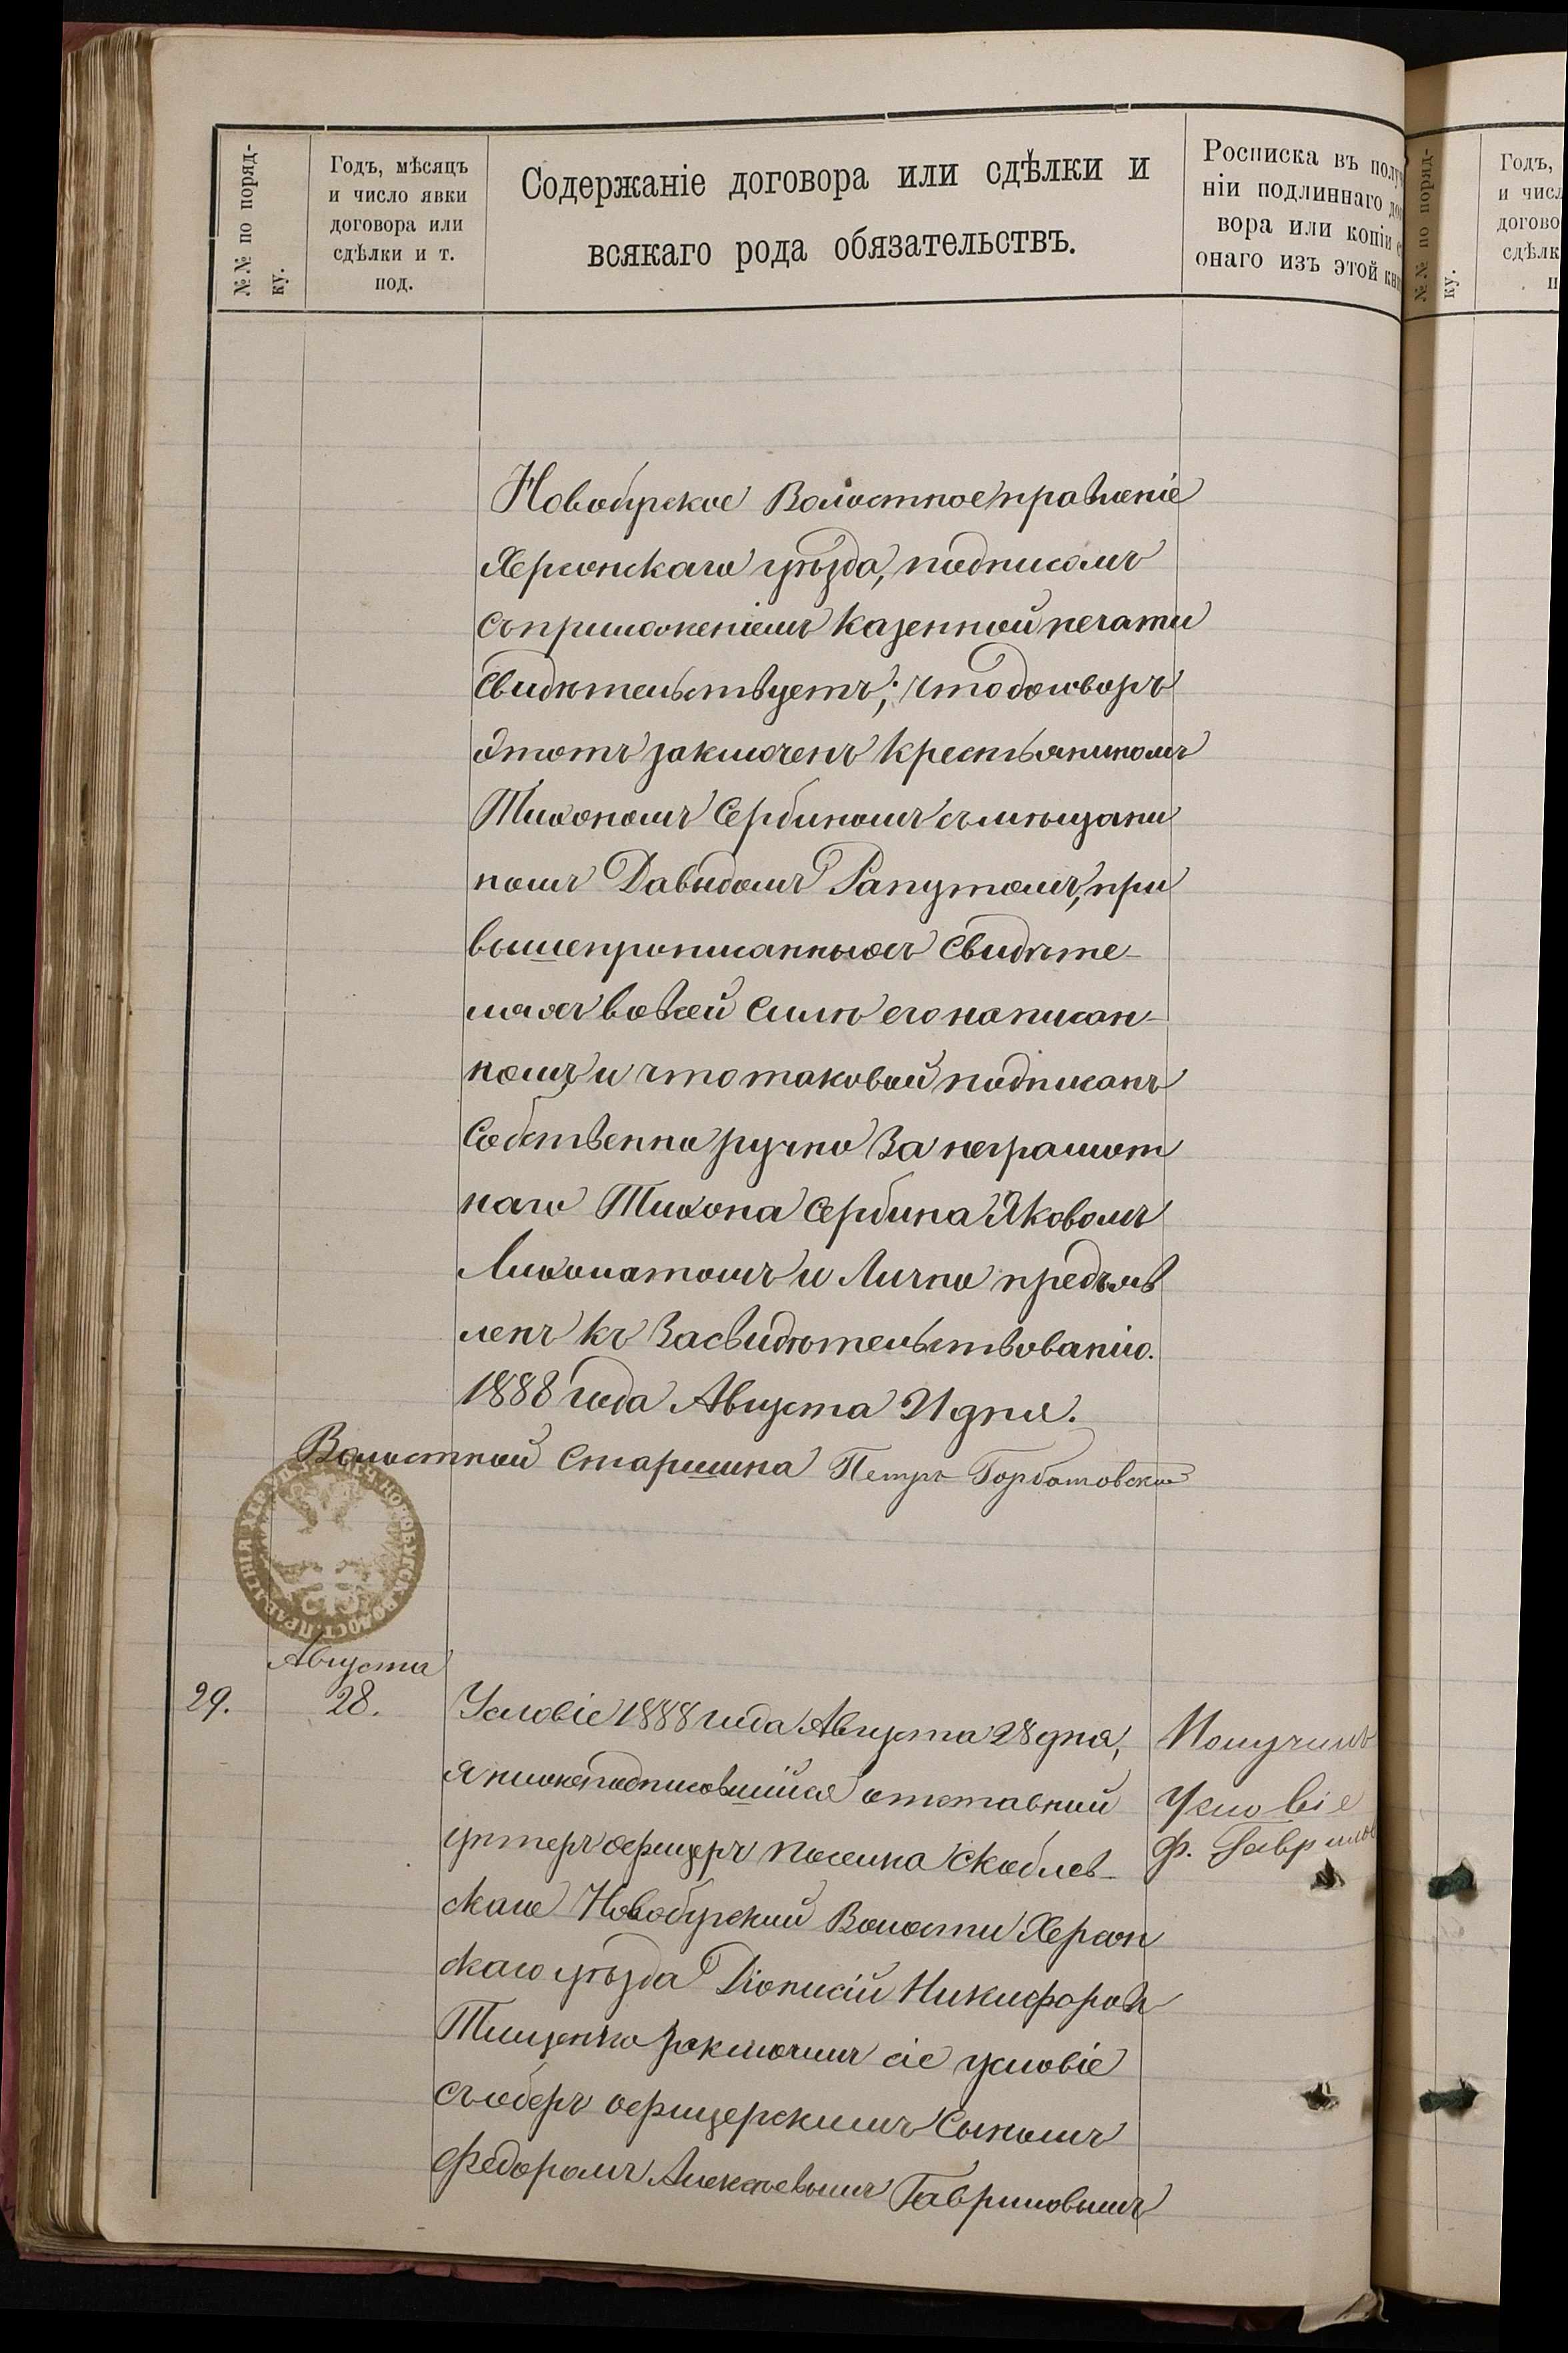 №№ по поряд-
ку.
Годъ, мѣсяцъ
и число явки
договора или
сдѣлки и т.
под.
Содержаніе договора или сдѣлки и
всякаго рода обязательствъ.
Росписка въ получ
ніи подлиннаго дог
вора или копіи с
онаго изъ этой кни
№№ по поряд-
ку.
Годъ,
и числ
догово
сдѣлк
п
Новобугское Волостное правленіе
Херсонскаго уѣзда, подписомъ
съ приложеніемъ казенной печати
свидѣтельствуетъ; что договоръ
этотъ заключенъ крестьяниномъ
Тихономъ Сербиномъ съ мѣщани
номъ Давидомъ Рапутомъ, при
вышепрописанныхъ свидѣте-
ляхъ во всей силѣ его написан-
номъ и что таковой подписанъ
собственноручно за неграмот
наго Тихона Сербина Яковомъ
Лихолатомъ и лично предъяв
ленъ къ засвидѣтельствованію.
1888 года Августа 21 дня.
Волостной Старшина Петръ Горбатовскій
НОВОБУГСК. ВОЛОСТ. ПРАВЛЕНІЯ
Августа
29. 28.
Условіе 1888 года Августа 28 дня,
я нижеподписовшійся отставний
унтеръ офицеръ поселка Скоблев-
скаго Новобугский Волости Херсон
скаго уѣзда Діонисій Никифоровъ
Тищенко заключилъ сіе условіе
съ оберъ офицерскимъ сыномъ
Федоромъ Алексѣевымъ Гавриловымъ
Получилъ
Условіе
Ф. Гаврилов